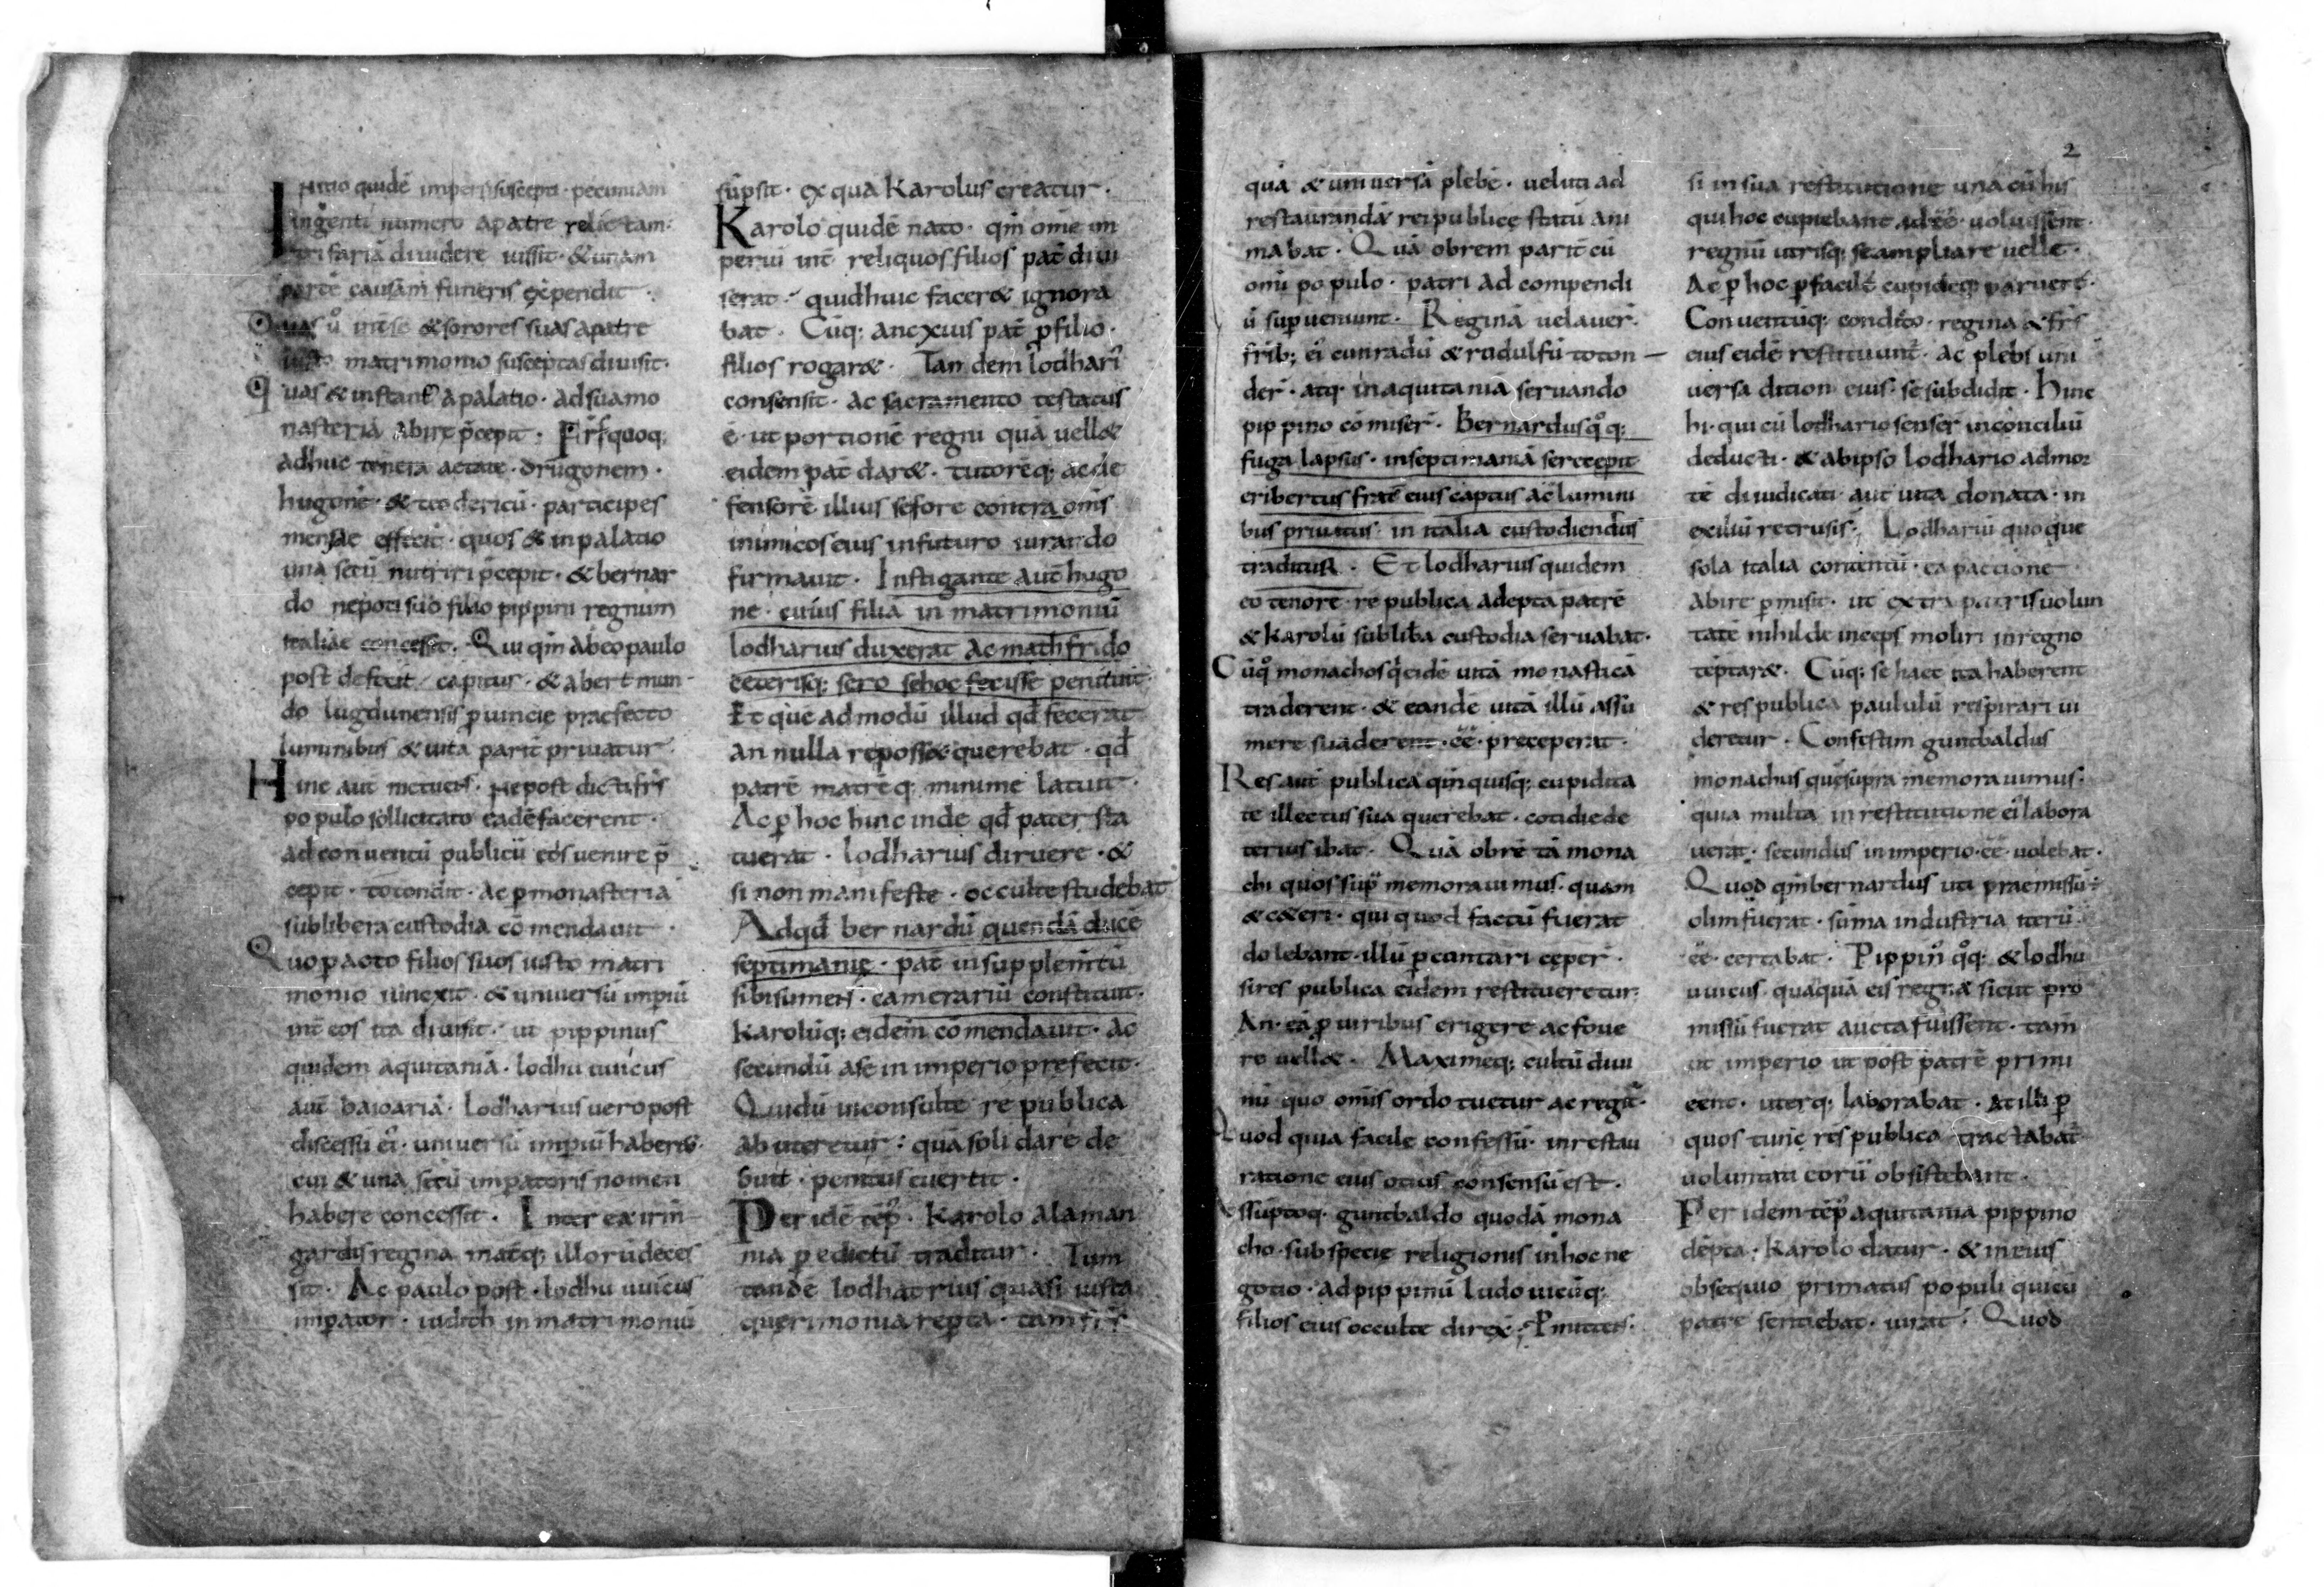 Initio quidē imperii suscepti · pecuniam
ingenti numero a patre relictam ·
trifariā dividere iussit · & unam
partē causam funeris expendit ·
Quas ů int se & sorores suas a patre
iusto matrimonio susceptas divisit ·
Quas & instant a palatio · ad sua mo
nasteria abire p̄cepit · Frīs quoq;
adhuc tenera aetate · drugonem ·
hugonē · & teodericū · participes
mensae effecit · quos & in palatio
una secū nutriri p̄cepit · & bernar
do nepoti suo filio pippini regnum
italiae concessit. Qui qm̄ ab eo paulo
post defecit capitur · & a bertmun
do lugdunensis provincie praefecto
luminibus & vita parit privatur ·
Hinc aut metuens · ne post dicti frīs
populo sollicitato eadē facerent ·
ad conventū publicū eos venire p̄
cepit · totondit · ac p monasteria
sub libera custodia cōmendavit ·
Quo pacto filios suos iusto matri
monio iunexit · & universū impiū
int eos ita divisit · ut pippinus
quidem aquitaniā · lodhuuuicus
aut baioariā · Lodharius vero post
discessū ei · universū impiū haber& ·
cui & una secū impatoris nomen
habere concessit · Interea irim
gardis regina mat̄q; illorū deces
sit · Ac paulo post · lodhuuuicus
impator · iudith in matrimoniū
sūpsit · ex qua Karolus creatur ·
Karolo quidē nato · qm̄ om̄e im
periū int reliquos filios pat divi
serat · quid huic facer& ignora
bat · Cūq; ancxius pat p filio ·
filios rogar& · Tandem lodhari'
consensit · ac sacramento testatus
ē · ut portionē regni quā vell&
eidem pat dar& · tutorēq; ac de
fensorē illius se fore contra om̄s
inimicos eius in futuro iurando
firmavit · Instigante aut hugo
ne · cuius filiā in matrimoniū
lodharius duxerat ac mathfrido
ceterisq; sero se hoc fecisse penituit ·
Et quē admodū illud qđ fecerat
annullare poss& querebat · qđ
patrē matrēq; minime latuit ·
Ac p hoc hinc inde qđ pater sta
tuerat · lodharius diruere · &
si non manifeste · occulte studebat
Ad qđ bernardū quendā ducē
septimanie · pat in supplemtū
sibi sumens · camerariū constituit ·
Karolūq; eidem cōmendavit · ac
secundū a se in imperio prefecit ·
Qui dū inconsulte re publica
abuteretur : quā solidare de
buit · penitus evertit ·
Per idē tēp' · Karolo alaman
nia p edictū traditur · Tum
tandē lodhatrius quasi iusta
querimonia repta · tam frīs
quā & universā plebē · veluti ad
restaurandā rei publicę statū ani
mabat · Quā obrem parit cū
om̄i populo · patri ad compendi
ū supveniunt · Reginā velaver ·
frib; ei' cunradū & rodulfū toton
der · atq· in aquitaniā servando
pippino cōmiser · Bernardus q̊q;
fuga lapsus · in septimaniā se recepit
eribertus frat eius captus ac lumini
bus privatus · in italia custodiendus
traditur · Et lodharius quidem
eo tenore · re publica adepta patrē
& Karolū sub libra custodia servabat ·
Cū q̊ monachos q Karolo eidē vitā monasticā
traderent · & eandē vitā illū assu
mere suaderent · eē preceperat ·
Res aut publica qm̄ quisq; cupidita
te illectus sua querebat · cotidie de
terius ibat · Quā obrē tā mona
chi quos supra memoravimus · quam
& c&eri · qui quod factū fuerat
dolebant · illū pcuntari cęper ·
si res publica eidem restitueretur:
An · eā p viribus erigere ac fove
re vell& · Maximeq; cultū divi
nū quo om̄is ordo tuetur ac regit ·
Quod quia facile confessū · in restau
ratione eius otius consensū est ·
Assūptoq· guntbaldo quodā mona
cho · sub specie religionis in hoc ne
gotio · ad pippinū ludovicūq;
filios eius occulte direx · Pmittens ·
2
si in sua restitutione una cū his
qui hoc cupiebant adeē · voluissent ·
regnū utrisq; se ampliare velle ·
Ac p hoc pfacile cupideq; paruere ·
Conventūq; condicto · regina & frīs
eius eidē restituunt · ac plebs uni
versa dition eius · se subdidit · Hinc
hi · qui cū lodhario senser in conciliū
deducti · & ab ipso lodhario ad mor
tē diiudicati aut vita donata · in
exiliū retrusis · Lodhariū quoque
sola italia contentū · ea pactione
abire pmisit · ut extra patris volun
tatē nihil deinceps moliri in regno
tēptar& · Cūq; se haec ita haberent
& res publica paululū respirari vi
deretur · Confestim guntbaldus
monachus quē supra memoravimus ·
quia multa in restitutione ei' labora
verat · secundus in imperio · eē volebat ·
Quod qm̄ bernardus uti praemissū ÷
olim fuerat · sūma industria iterū ·
eē · certabat · Pippin' q̊q; & lodhu
uuicus quāquā eis regna sicut pro
missū fuerat aucta fuissent · tam̄
ut imperio ut post patrē primi
eēnt · uterq; laborabat · at illi p
quos tunc res publica tractabat
voluntati eorū obsistebant ·
Per idem tēp' aquitania pippino
dēpta · Karolo datur · & in eius
obsequio primatus populi qui cū
patre sentiebat · iurat : Quod